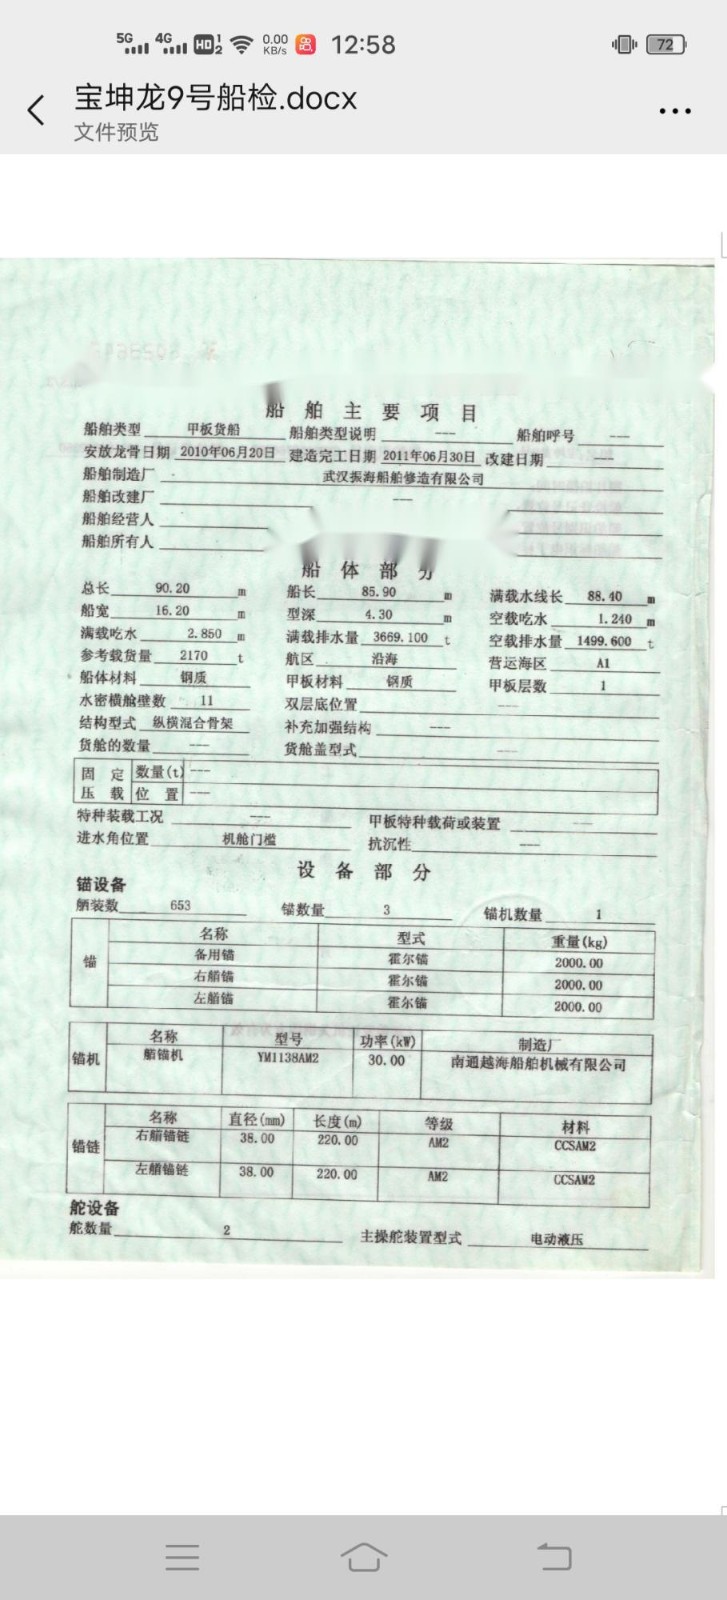 5G 4G HD 1 2 0.00 KB/s 12:58 72
宝坤龙9号船检.docx
文件预览
船舶主要项目
船舶类型 甲板货船 船舶类型说明 --- 船舶呼号 ---
安放龙骨日期 2010年06月20日 建造完工日期 2011年06月30日 改建日期 ---
船舶制造厂 武汉振海船舶修造有限公司
船舶改建厂 ---
船舶经营人
船舶所有人
船体部分
总长 90.20 m 船长 85.90 m 满载水线长 88.40 m
船宽 16.20 m 型深 4.30 m 空载吃水 1.240 m
满载吃水 2.850 m 满载排水量 3669.100 t 空载排水量 1499.600 t
参考载货量 2170 t 航区 沿海 营运海区 A1
船体材料 钢质 甲板材料 钢质 甲板层数 1
水密横舱壁数 11 双层底位置 ---
结构型式 纵横混合骨架 补充加强结构 ---
货舱的数量 --- 货舱盖型式 ---
固定 数量(t) ---
压载 位置 ---
特种装载工况 --- 甲板特种载荷或装置 ---
进水角位置 机舱门槛 抗沉性 ---
设备部分
锚设备
舾装数 653 锚数量 3 锚机数量 1
名称 型式 重量(kg)
备用锚 霍尔锚 2000.00
锚 右艏锚 霍尔锚 2000.00
左艏锚 霍尔锚 2000.00
名称 型号 功率(kW) 制造厂
锚机 艏锚机 YM1138AM2 30.00 南通越海船舶机械有限公司
名称 直径(mm) 长度(m) 等级 材料
锚链 右艏锚链 38.00 220.00 AM2 CCSAM2
左艏锚链 38.00 220.00 AM2 CCSAM2
舵设备
舵数量 2 主操舵装置型式 电动液压